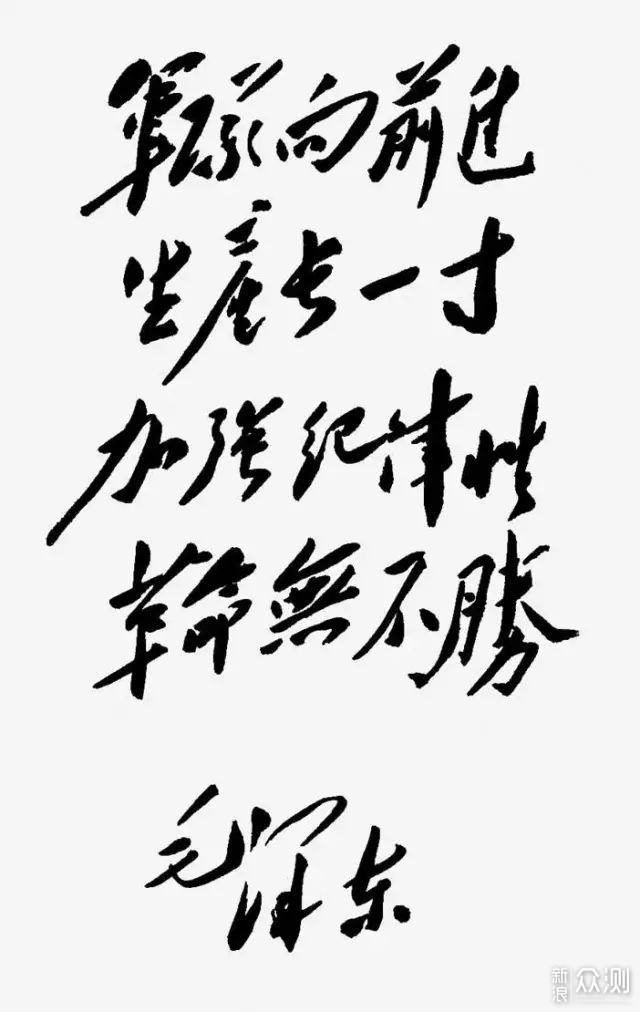 軍隊向前進
生産長一寸
加强紀律性
革命無不勝
毛泽东
新浪众测